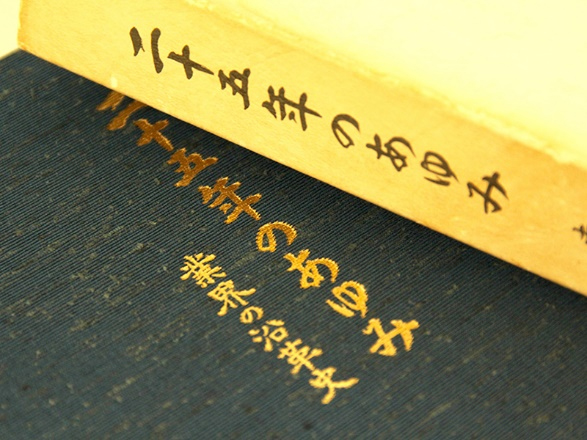 二十五年のあゆみ
二十五年のあゆみ
業界の沿革史